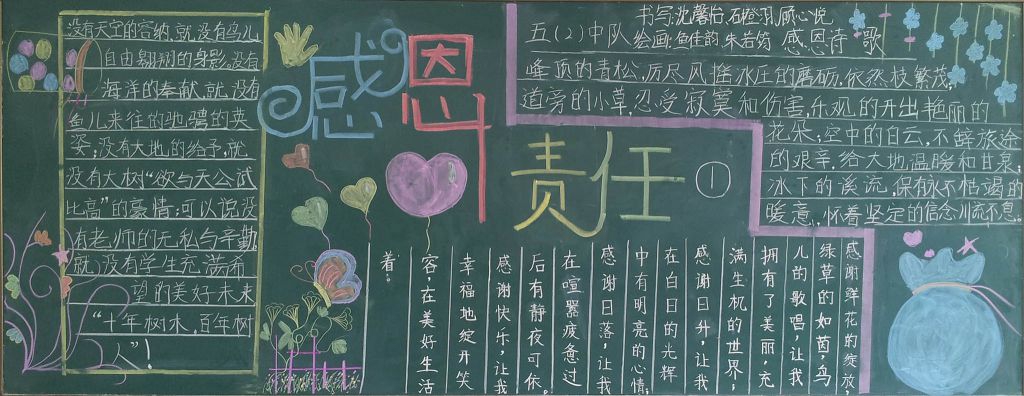 没有天空的容纳,就没有鸟儿
自由翱翔的身影,没有
海洋的奉献,就没有
鱼儿来往的驰骋的英
姿;没有大地的给予,就
没有大树“欲与天公试
比高”的豪情;可以说没
有老师的无私与辛勤
就没有学生充满希
望的美好未来
“十年树木,百年树
人”!
感恩
责任
①
五(2)中队
书写:沈馨怡、石澄羽、顾心悦
绘画:鱼佳韵、朱若筠
感恩诗歌
峰顶的青松,历尽风摧冰压的磨砺,依然枝繁茂;
道旁的小草,忍受寂寞和伤害,乐观的开出艳丽的
花朵;空中的白云,不辞旅途
的艰辛,给大地温暖和甘泉;
冰下的溪流,保有永不枯竭的
暖意,怀着坚定的信念川流不息。
感谢鲜花的绽放,
绿草的如茵,鸟
儿的歌唱,让我
拥有了美丽,充
满生机的世界;
感谢日升,让我
在白日的光辉
中有明亮的心情;
感谢日落,让我
在喧嚣疲惫过
后有静夜可依。
感谢快乐,让我
幸福地绽开笑
容,在美好生活
着。